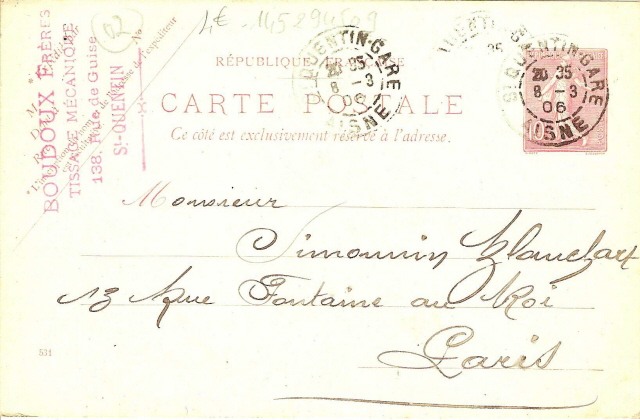 BOUDOUX FRÈRES
TISSAGE MÉCANIQUE
138, Rue de Guise
St-QUENTIN
02
4€
RÉPUBLIQUE FRANÇAISE
CARTE POSTALE
Ce côté est exclusivement réservé à l'adresse.
St QUENTIN-GARE
20 35
8 - 3
06
AISNE
35
St QUENTIN-GARE
20 35
8 - 3
06
AISNE
10
Monsieur
Simonnin Blanchart
13 Rue Fontaine au Roi
Paris
531